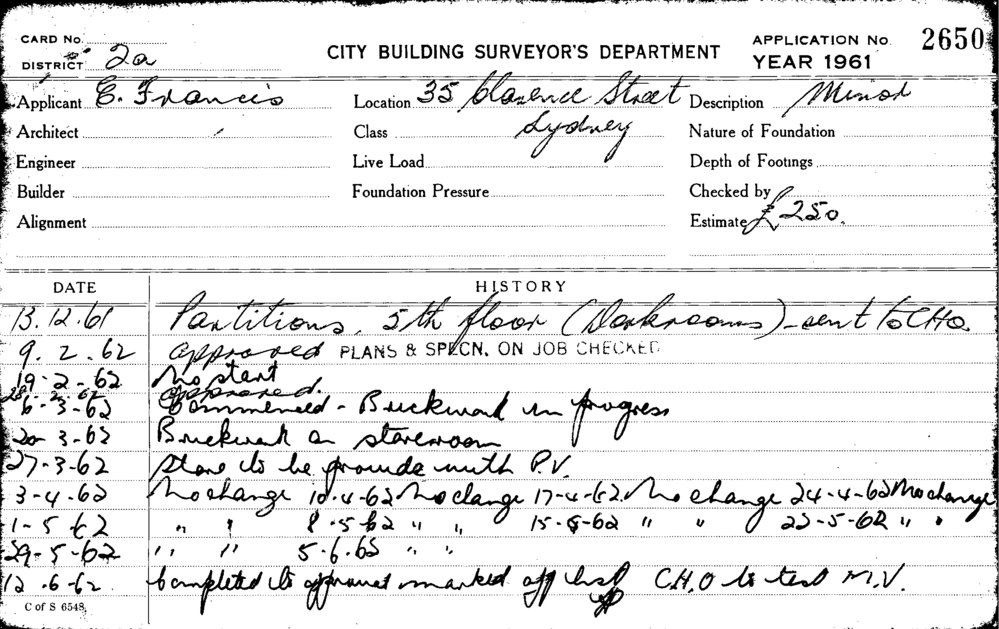 CARD No.
DISTRICT 2a
CITY BUILDING SURVEYOR'S DEPARTMENT
APPLICATION No. 2650
YEAR 1961
Applicant E. Francis
Location 35 Clarence Street
Sydney
Description Minor
Architect
Class
Nature of Foundation
Engineer
Live Load
Depth of Footings
Builder
Foundation Pressure
Checked by
Alignment
Estimate £250.
DATE HISTORY
13.12.61 Partitions, 5th floor (Darkrooms) - sent to CHO.
9.2.62 approved PLANS & SPECN. ON JOB CHECKED
19-2-62 No start
28-2-62 approved.
6-3-62 Commenced - Brickwork in progress
20-3-62 Brickwork on storeroom
27-3-62 Store to be provide with P.V.
3-4-62 No change 10-4-62 No change 17-4-62 No change 24-4-62 No change
1-5-62 " " 8-5-62 " " 15-5-62 " " 22-5-62 " "
29-5-62 " " 5.6.62 " "
12.6-62 Completed to approval marked off list C.H.O to test M.V.
C of S 6548